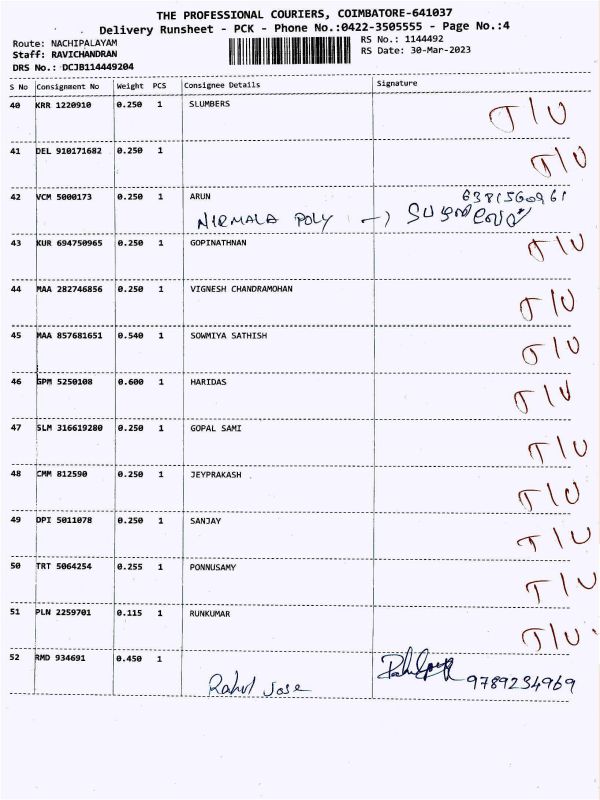 THE PROFESSIONAL COURIERS, COIMBATORE-641037
Delivery Runsheet - PCK - Phone No.:0422-3505555 - Page No.:4
Route: NACHIPALAYAM RS No.: 1144492
Staff: RAVICHANDRAN RS Date: 30-Mar-2023
DRS No.: DCJB114449204
S No Consignment No Weight PCS Consignee Details Signature
40 KRR 1220910 0.250 1 SLUMBERS J/U
41 DEL 910171682 0.250 1 J/U
42 VCM 5000173 0.250 1 ARUN 6381560961
NIRMALA POLY →
43 KUR 694750965 0.250 1 GOPINATHNAN J/U
44 MAA 282746856 0.250 1 VIGNESH CHANDRAMOHAN J/U
45 MAA 857681651 0.540 1 SOWMIYA SATHISH J/U
46 GPM 5250108 0.600 1 HARIDAS J/U
47 SLM 316619280 0.250 1 GOPAL SAMI J/U
48 CMM 812590 0.250 1 JEYPRAKASH J/U
49 DPI 5011078 0.250 1 SANJAY J/U
50 TRT 5064254 0.255 1 PONNUSAMY J/U
51 PLN 2259701 0.115 1 RUNKUMAR J/U
52 RMD 934691 0.450 1
Rahul Jose 9789234969